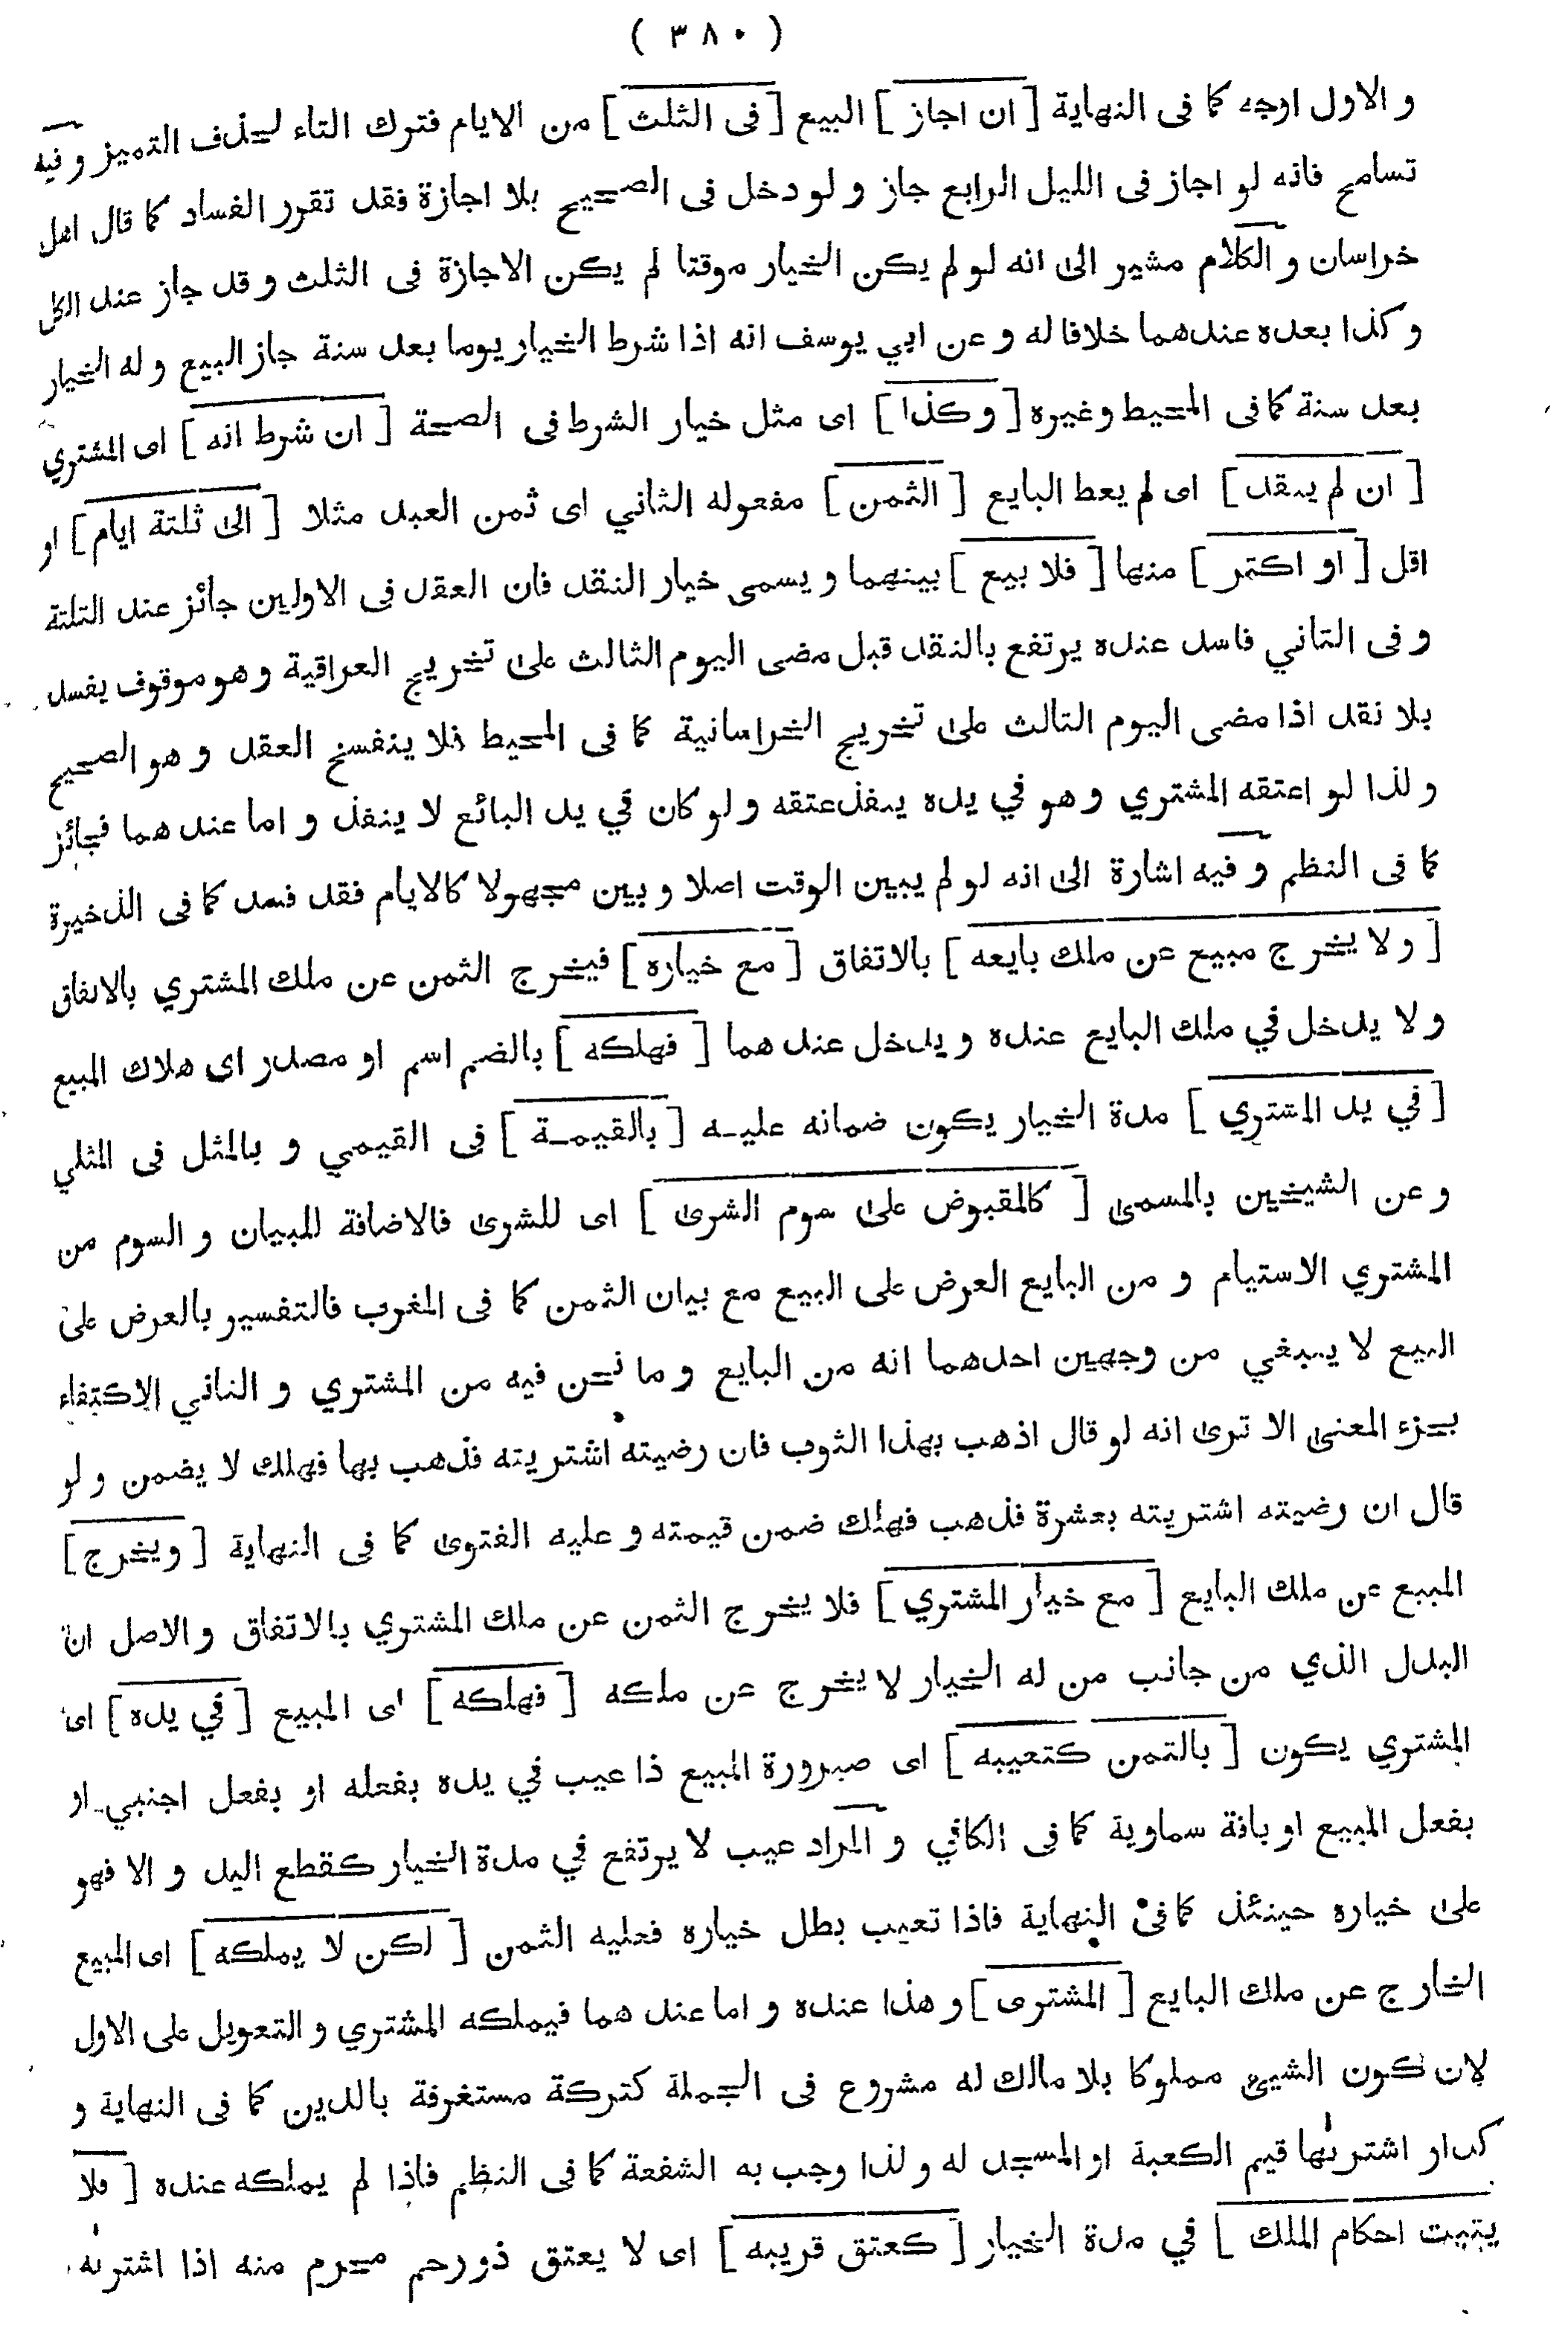 ( ٣٨٠ )
و الاول اوجه كما فى النهاية [ ان اجاز ] البيع [ فى الثلث ] من الايام فترك التاء لحذف التميز و فيه
تسامح فانه لو اجاز فى الليل الرابع جاز و لو دخل فى الصحيح بلا اجازة فقد تقرر الفساد كما قال اهل
خراسان و الكلام مشير الى انه لو لم يكن الخيار موقتا لم يكن الاجازة فى الثلث و قد جاز عند الكل
و كذا بعده عندهما خلافا له و عن ابي يوسف انه اذا شرط الخيار يوما بعد سنة جاز البيع و له الخيار
بعد سنة كما فى المحيط وغيره [ و كذا ] اى مثل خيار الشرط فى الصحة [ ان شرط انه ] اى المشتري
[ ان لم ينقد ] اى لم يعط البايع [ الثمن ] مفعوله الثاني اى ثمن العبد مثلا [ الى ثلثة ايام ] او
اقل [ او اكثر ] منها [ فلا بيع ] بينهما و يسمى خيار النقد فان العقد فى الاولين جائز عند الثلثة
و فى الثاني فاسد عنده يرتفع بالنقد قبل مضى اليوم الثالث على تخريج العراقية و هو موقوف يفسد
بلا نقد اذا مضى اليوم الثالث على تخريج الخراسانية كما فى المحيط فلا ينفسخ العقد و هو الصحيح
و لذا لو اعتقه المشتري و هو في يده ينفذ عتقه و لو كان في يد البائع لا ينفذ و اما عند هما فجائز
كما فى النظم و فيه اشارة الى انه لو لم يبين الوقت اصلا و بين مجهولا كالايام فقد فسد كما فى الذخيرة
[ و لا يخرج مبيع عن ملك بايعه ] بالاتفاق [ مع خياره ] فيخرج الثمن عن ملك المشتري بالاتفاق
و لا يدخل في ملك البايع عنده و يدخل عند هما [ فهلكه ] بالضم اسم او مصدر اى هلاك المبيع
[ في يد المشتري ] مدة الخيار يكون ضمانه عليه [ بالقيمة ] فى القيمي و بالمثل فى المثلي
و عن الشيخين بالمسمى [ كالمقبوض على سوم الشرى ] اى للشرى فالاضافة للبيان و السوم من
المشتري الاستيام و من البايع العرض على البيع مع بيان الثمن كما فى المغرب فالتفسير بالعرض على
البيع لا ينبغي من وجهين احدهما انه من البايع و ما نحن فيه من المشتري و الثاني الاكتفاء
بجزء المعنى الا ترى انه لو قال اذهب بهذا الثوب فان رضيته اشتريته فذهب بها فهلك لا يضمن و لو
قال ان رضيته اشتريته بعشرة فذهب فهلك ضمن قيمته و عليه الفتوى كما فى النهاية [ و يخرج ]
المبيع عن ملك البايع [ مع خيار المشتري ] فلا يخرج الثمن عن ملك المشتري بالاتفاق و الاصل ان
البدل الذي من جانب من له الخيار لا يخرج عن ملكه [ فهلكه ] اى المبيع [ في يده ] اى
المشتري يكون [ بالثمن كتعيبه ] اى صيرورة المبيع ذا عيب في يده بفعله او بفعل اجنبي او
بفعل المبيع او بافة سماوية كما فى الكافي و المراد عيب لا يرتفع في مدة الخيار كقطع اليد و الا فهو
على خياره حينئذ كما فى النهاية فاذا تعيب بطل خياره فعليه الثمن [ لكن لا يملكه ] اى المبيع
الخارج عن ملك البايع [ المشترى ] و هذا عنده و اما عند هما فيملكه المشتري و التعويل على الاول
لان كون الشيئ مملوكا بلا مالك له مشروع فى الجملة كتركة مستغرقة بالدين كما فى النهاية و
كدار اشتريها قيم الكعبة او المسجد له و لذا وجب به الشفعة كما فى النظم فاذا لم يملكه عنده [ فلا
يثبت احكام الملك ] في مدة الخيار [ كعتق قريبه ] اى لا يعتق ذو رحم محرم منه اذا اشتريه